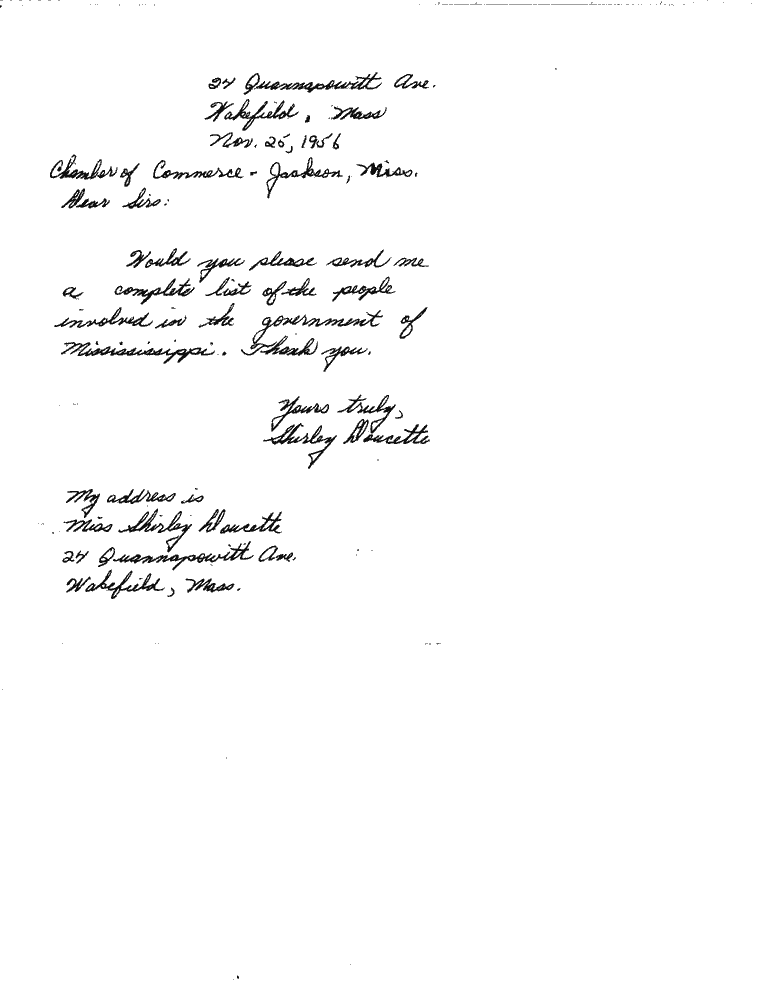 24 Quannapowitt Ave.
Wakefield, Mass
Nov. 25, 1956
Chamber of Commerce - Jackson, Miss.
Dear Sirs:
Would you please send me
a complete list of the people
involved in the government of
Missississippi. Thank you.
Yours truly,
Shirley Doucette
My address is
Miss Shirley Doucette
24 Quannapowitt Ave.
Wakefield, Mass.